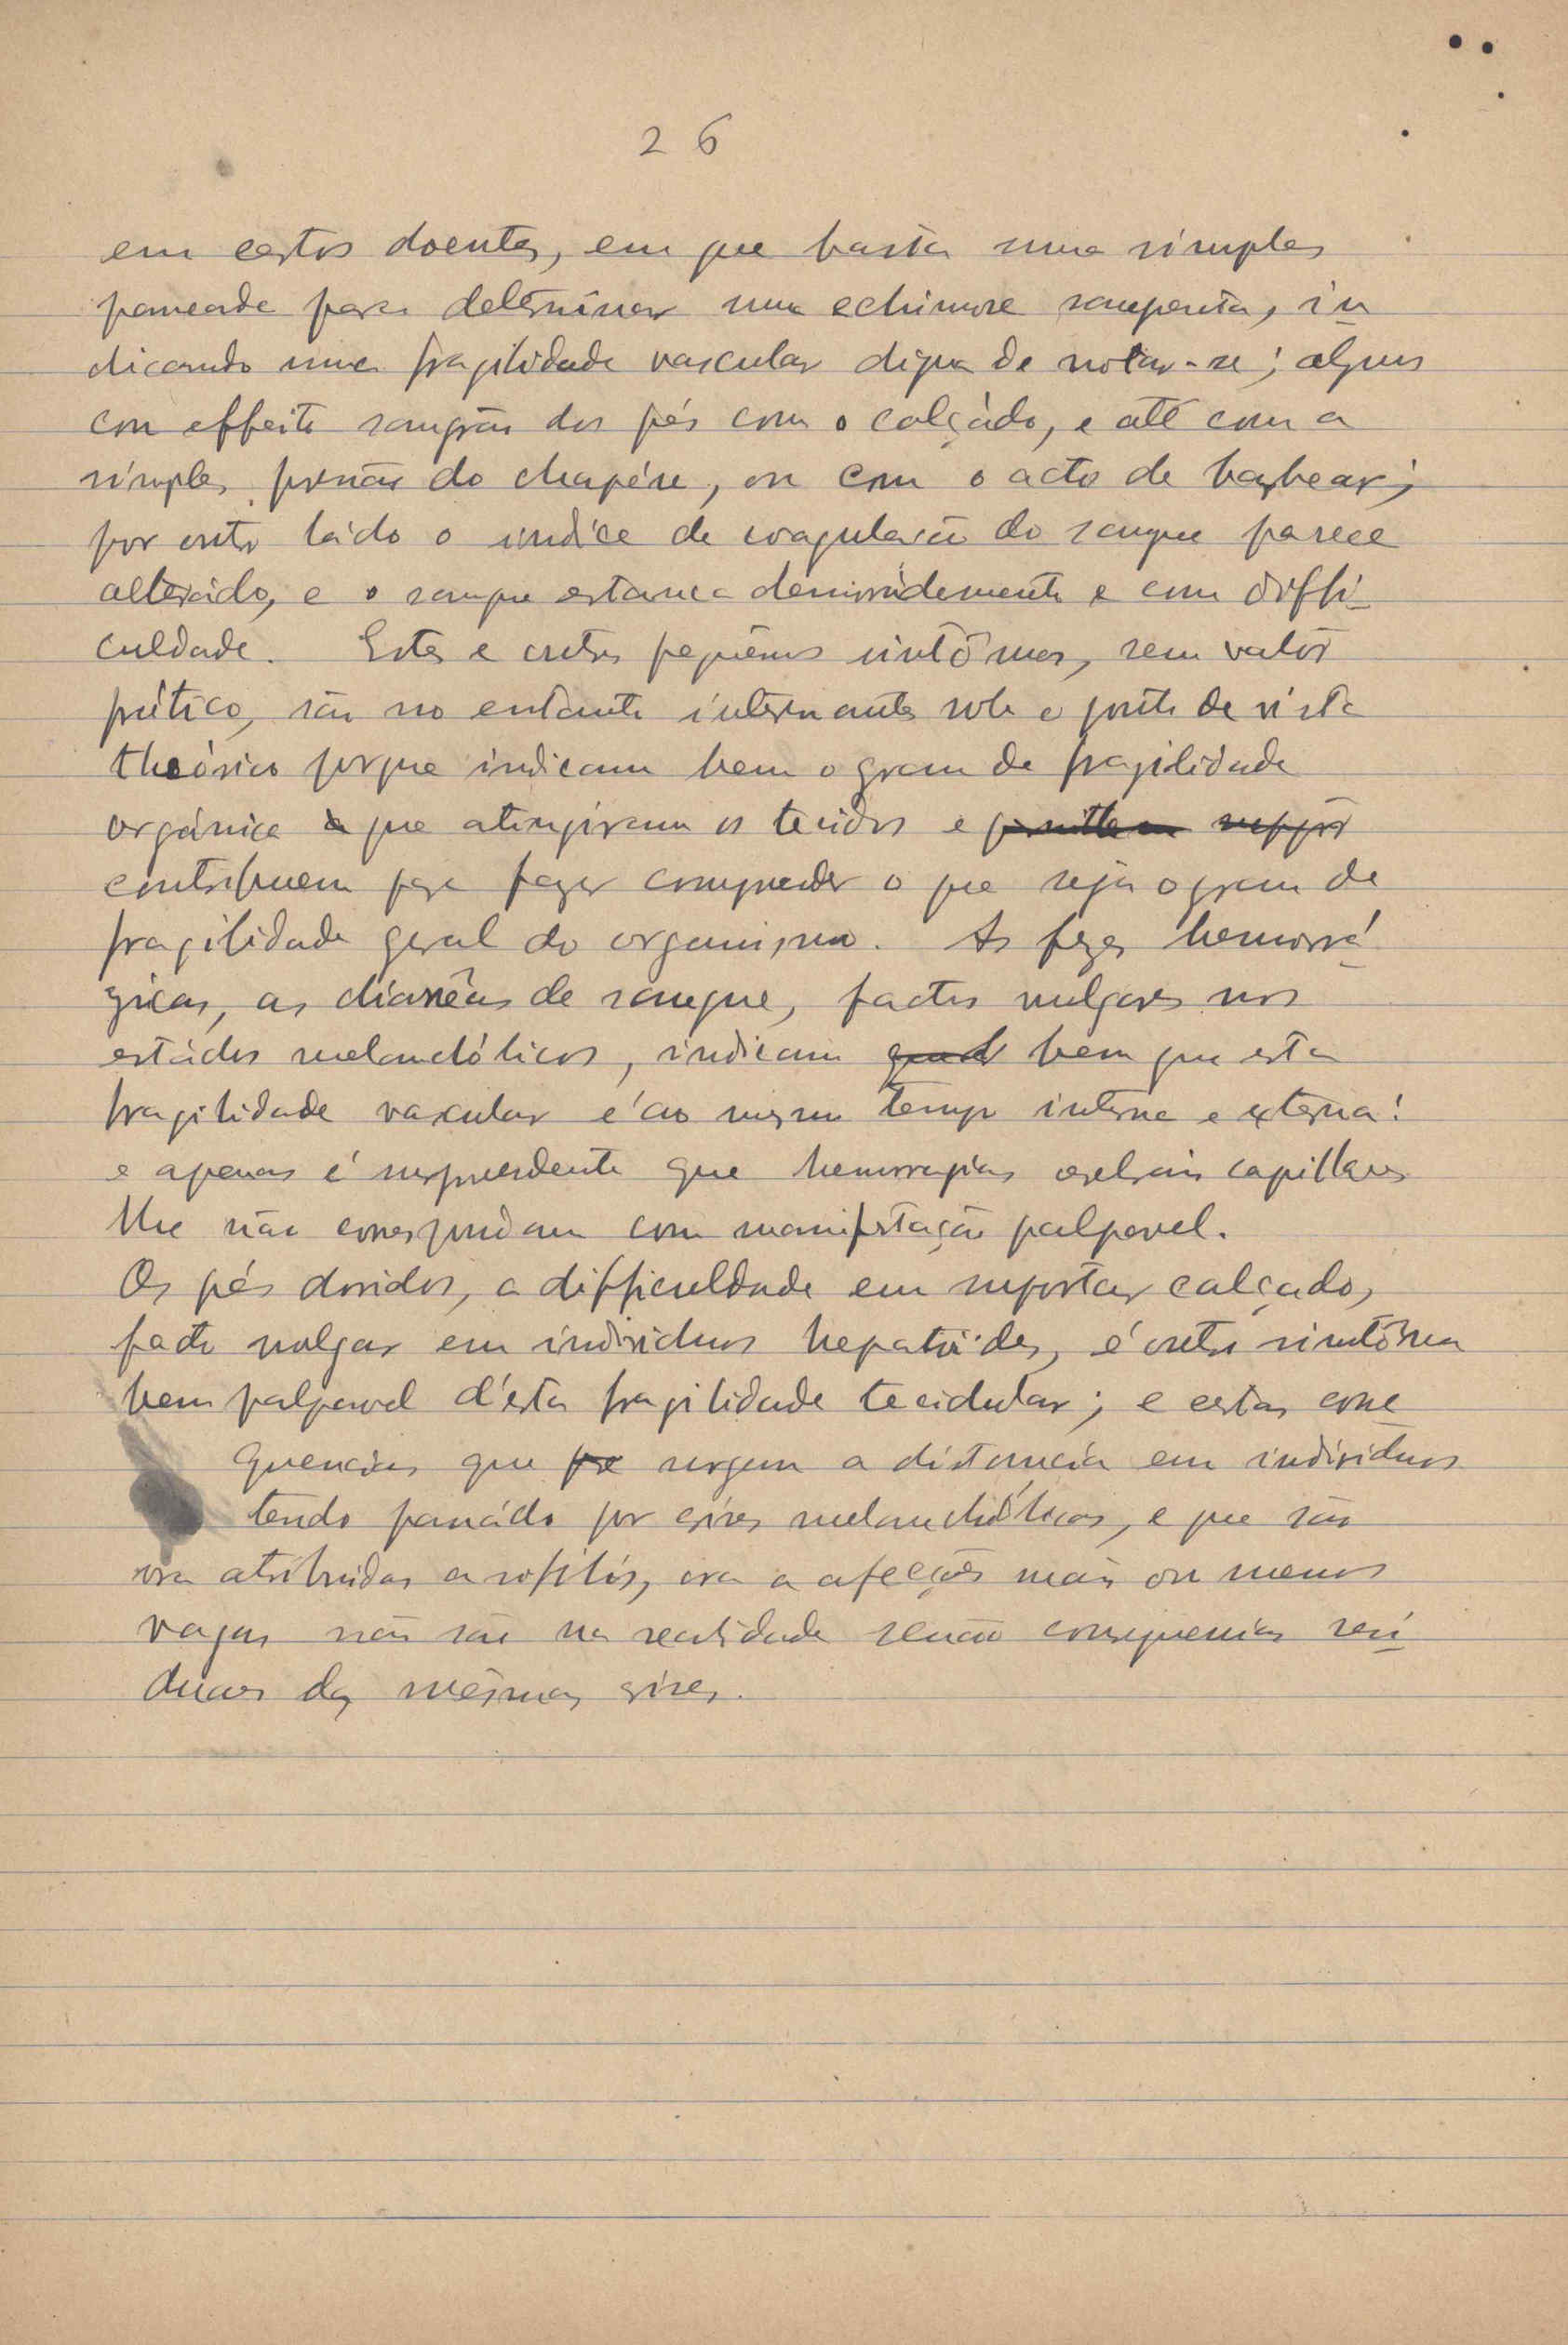 26
em certos doentes, em que basta uma simples
pancada para determinar uma echimose sangrenta, in
dicando uma fragilidade vascular digna de notar-se; alguns
com effeito sangrão dos pés com o calçádo, e até com a
simples pressão do chapéu, ou com o acto de barbear;
por outro ládo o indice de coagulação do sangue parece
alterádo, e o sangue estanca demoradamente e com diffi
culdade. Estes e outros pequênos sintômas, sem valôr
prático, são no entanto interessantes sob o ponto de vista
theórico porque indicam bem o grau de fragilidade
orgánica a que atingiram os tecidos e permittem suppôr
contribuem para fazer comprender o que seja o grau de
fragilidade geral do organismo. As fezes hemorrá
gicas, as diarrêas de sangue, factos vulgares nos
estádos melanchólicos, indicam bem que esta
fragilidade vascular é ao mesmo tempo interna e externa:
e apenas é surprendente que hemorragias cerebrais capillares
lhe não correspondam com manifestação palpavel.
Os pés doridos, a difficuldade em suportar calçado,
facto vulgar em individuos hepatóides, é outro sintôma
bem palpavel d'esta fragilidade tecidular; e certas conse
quencias que surgem a distancia em individuos
tendo passádo por crises melanchólicas, e que são
ora atribuidas a sifilis, ora a afecções mais ou menos
vagas não são na realidade senão consequencias resi
duaes das mesmas crises.